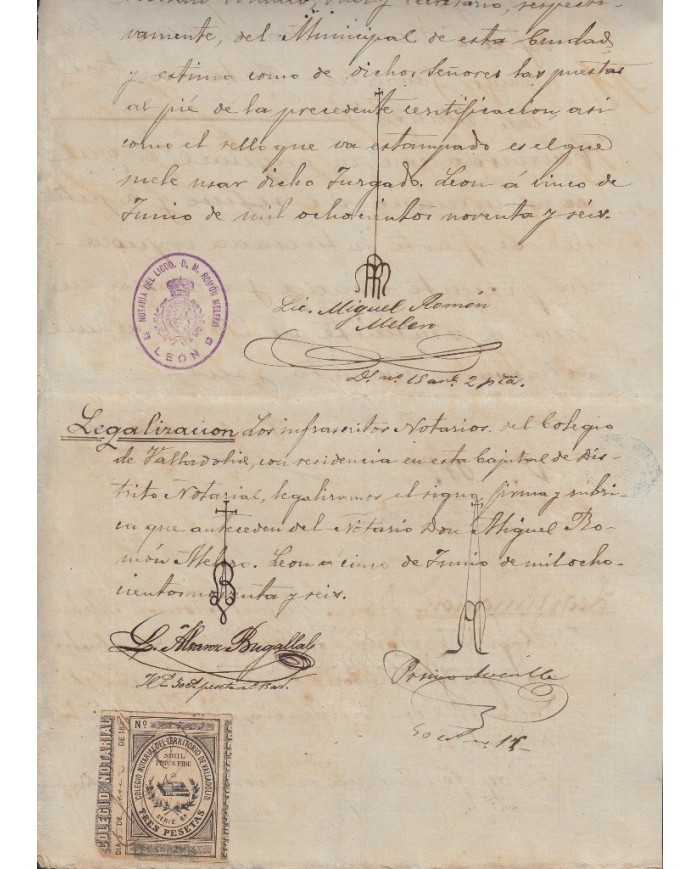 vamente, del Municipal de esta Ciudad,
y estimo como de dichos Señores las puestas
al pié de la precedente certificacion, asi
como el sello que va estampado es el que
suele usar dicho Juzgado. Leon á cinco de
Junio de mil ochocientos noventa y séis.
NOTARIA DEL LICDO. D. M. ROMÓN MELERO
LEÓN
Lic. Miguel Romón
Melero
Legalizacion Los infrascritos Notarios del Colegio
de Valladolid, con residencia en esta Capital de Dis-
trito Notarial, legalizamos el signo, firma y rúbri-
ca que anteceden del Notario Don Miguel Ro-
món Melero. Leon á cinco de Junio de mil ocho-
cientos noventa y seis.
Bugallal
Primo
COLEGIO NOTARIAL
DIA DE DE 18
Nº
COLEGIO NOTARIAL DEL TERRITORIO DE VALLADOLID
NIHIL
PRIUS FIDE
SERIE 6ª
TRES PESETAS